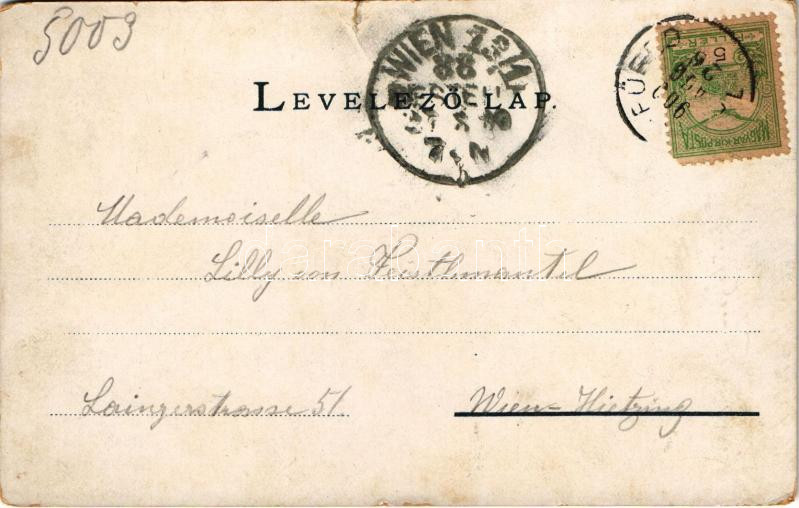 5003
WIEN 13/1
88
7.N
FÜRED
5
FILLÉR
MAGYAR KIR. POSTA
LEVELEZŐ-LAP.
Mademoiselle
Lilly von Feistlmantel
darabanth
Lainzerstrasse 51.
Wien-Hietzing